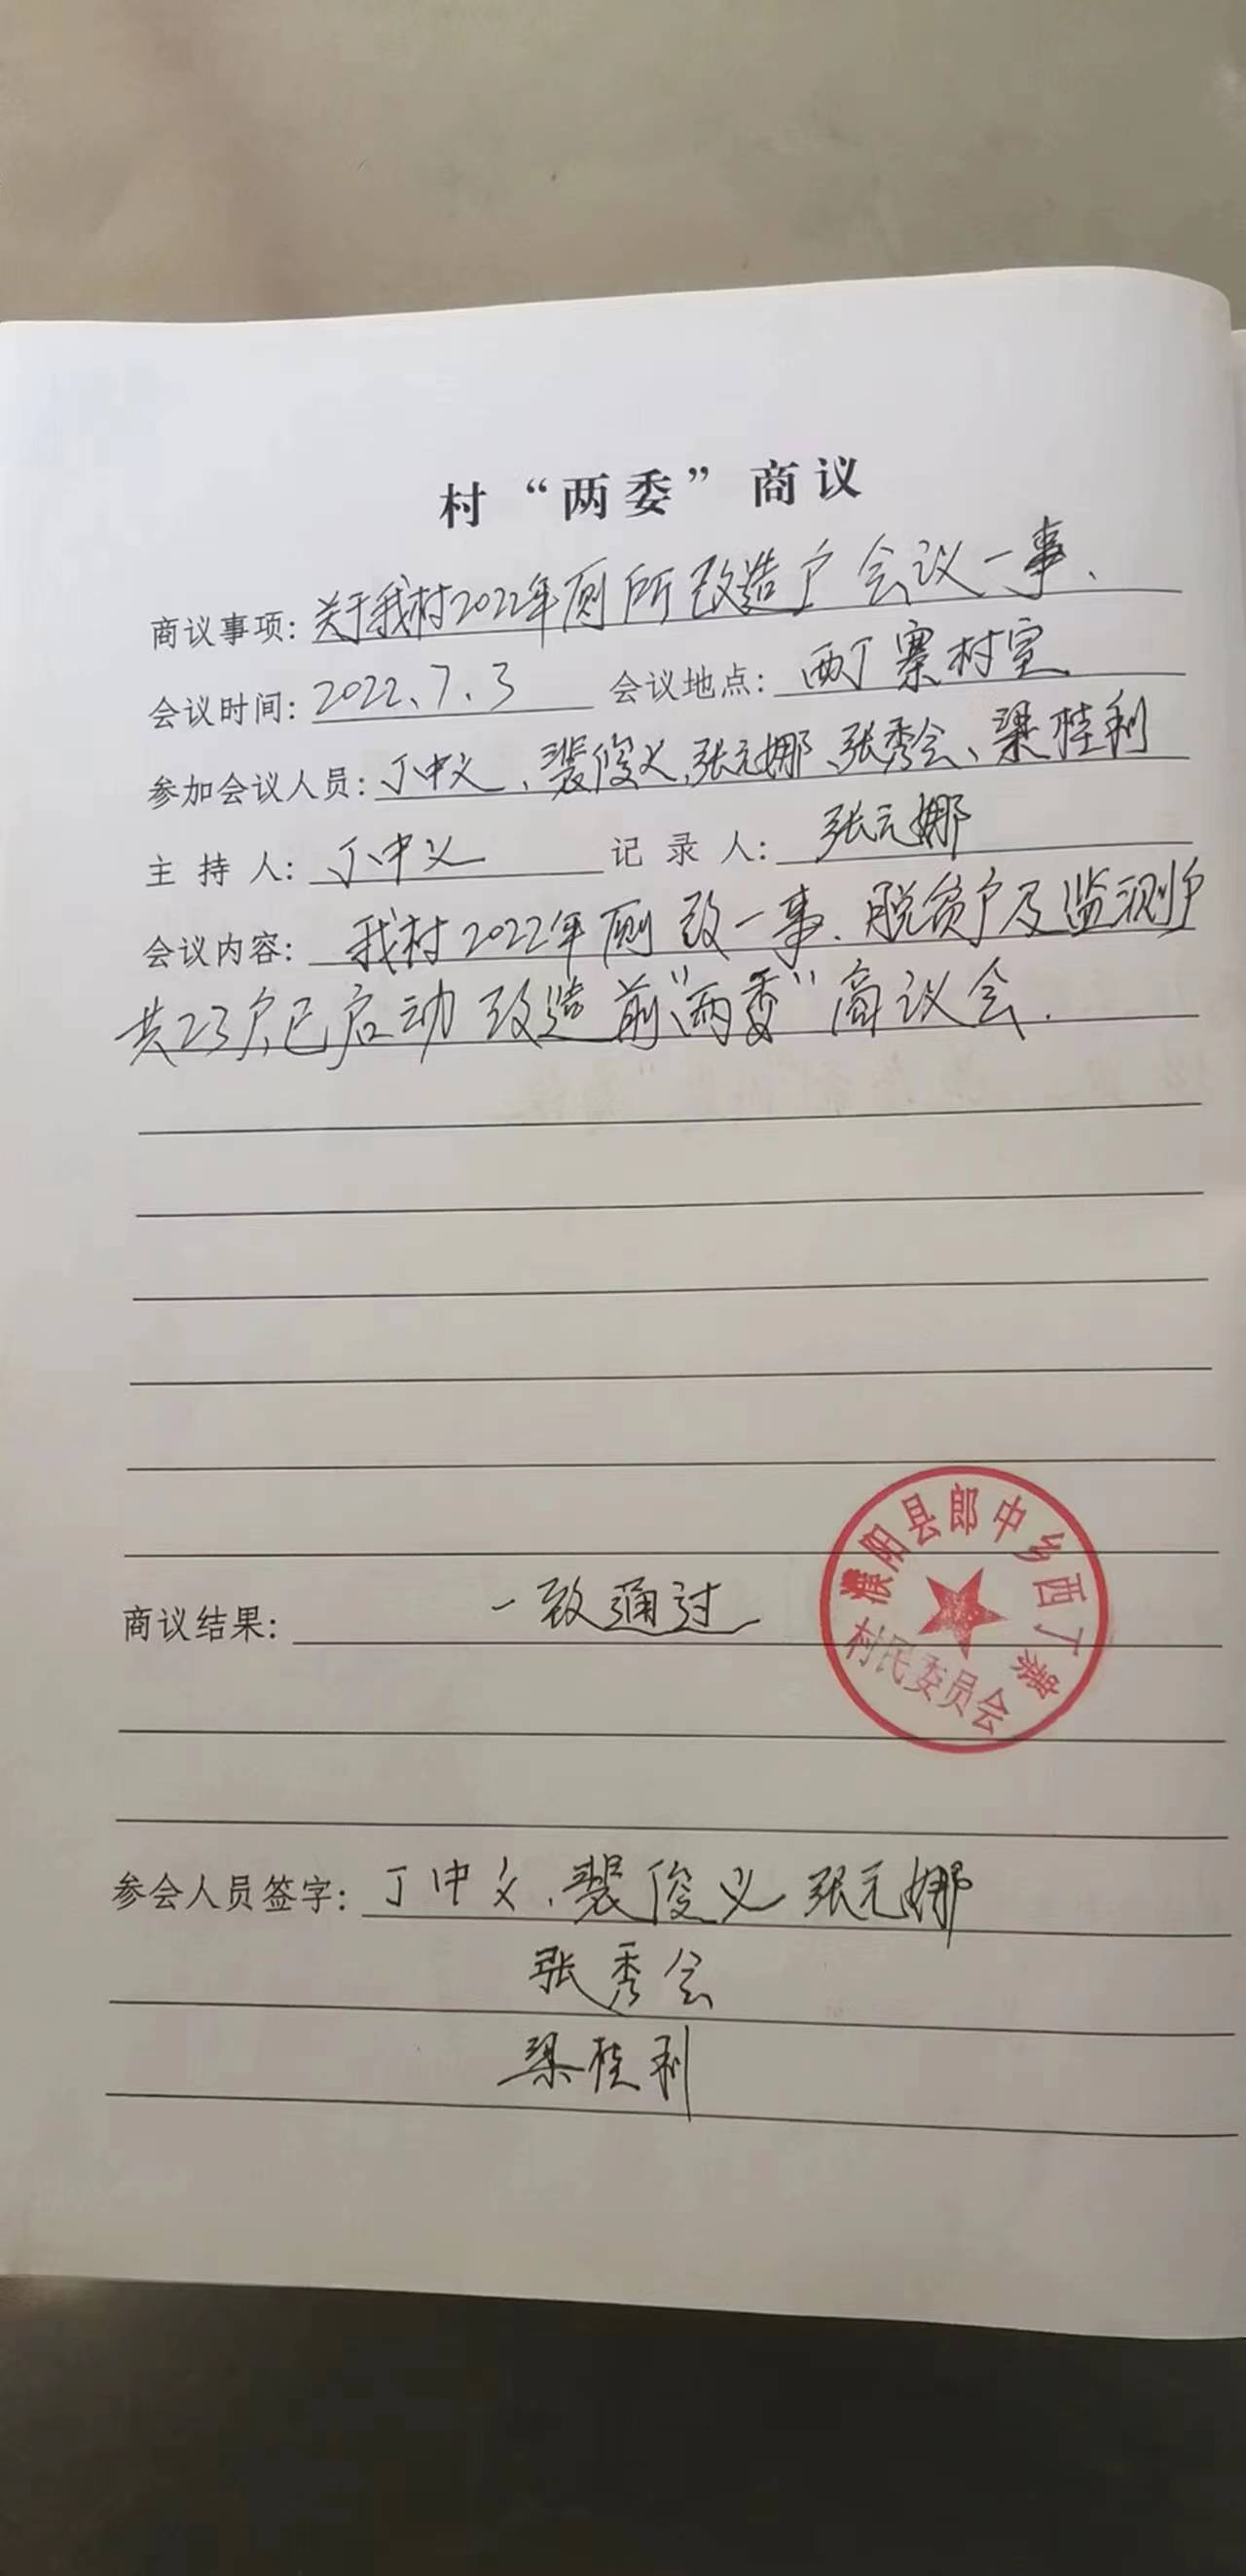 村“两委”商议
商议事项：关于我村2022年厕所改造户会议一事、
会议时间：2022、7、3 会议地点：西丁寨村室
参加会议人员：丁中义、裴俊义、张元娜、张秀会、梁桂利
主持人：丁中义 记录人：张元娜
会议内容：我村2022年厕改一事、脱贫户及监测户
共23户已启动改造前“两委”商议会.
商议结果：一致通过
濮阳县郎中乡西丁寨
村民委员会
参会人员签字：丁中义、裴俊义 张元娜
张秀会
梁桂利